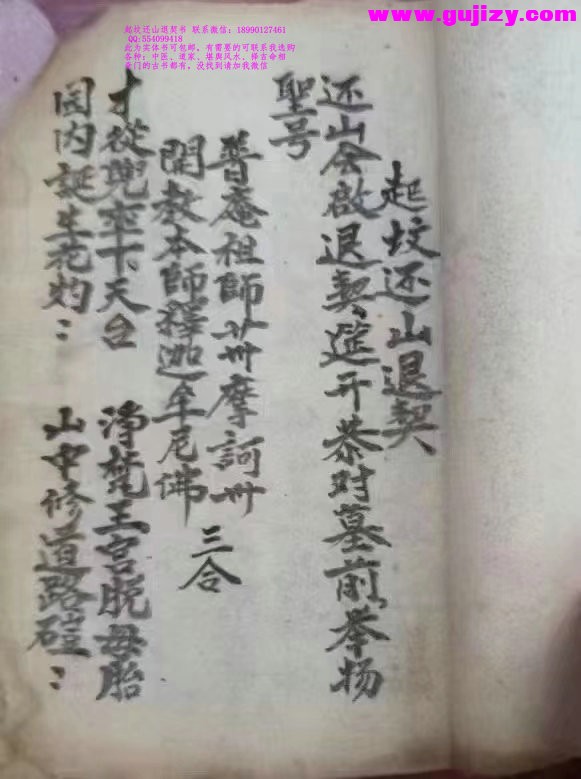 www.gujizy.com
起坟还山退契书 联系微信：18990127461
QQ:554099418
此为实体书可包邮，有需要的可联系我选购
各种：中医、道家、堪舆风水、择吉命相
奇门的古书都有，没找到请加我微信
起坟还山退契
还山会啟退契筵开恭对墓前举扬
聖号
普庵祖師卄摩訶卅
開教本師釋迦牟尼佛 三合
才從兜率下天台 淨梵王宫脱母胎
园内誕生花灼〻 山中修道路磋〻